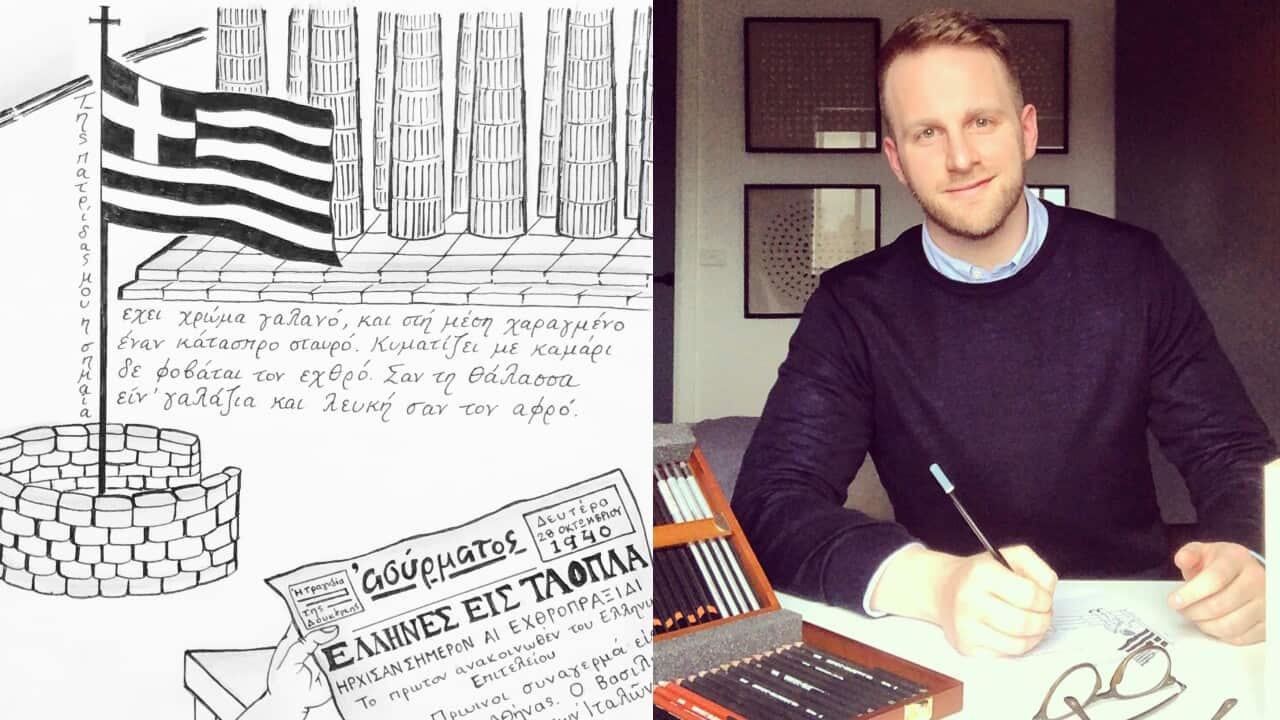 Της πατρίδας μου η σημαία
έχει χρώμα γαλανό, και στή μέση χαραγμένο
έναν κάτασπρο σταυρό. Κυματίζει με καμάρι
δε φοβάται τον εχθρό. Σαν τη θάλασσα
είν' γαλάζια και λευκή σαν τον αφρό.
Δευτέρα
28 ΟΚΤΩΒΡΙΟΥ
1940
'ασύρματος
Η τραγωδία
της
ΕΛΛΗΝΕΣ ΕΙΣ ΤΑ ΟΠΛΑ
ΗΡΧΙΣΑΝ ΣΗΜΕΡΟΝ ΑΙ ΕΧΘΡΟΠΡΑΞΙΔΙ
Το πρωτον ανακοινωθεν του Ελληνικ
Επιτελείου
Πρωινοι συναγερμά εί
θήνας. Ο βασιλ
ων Ιταλών